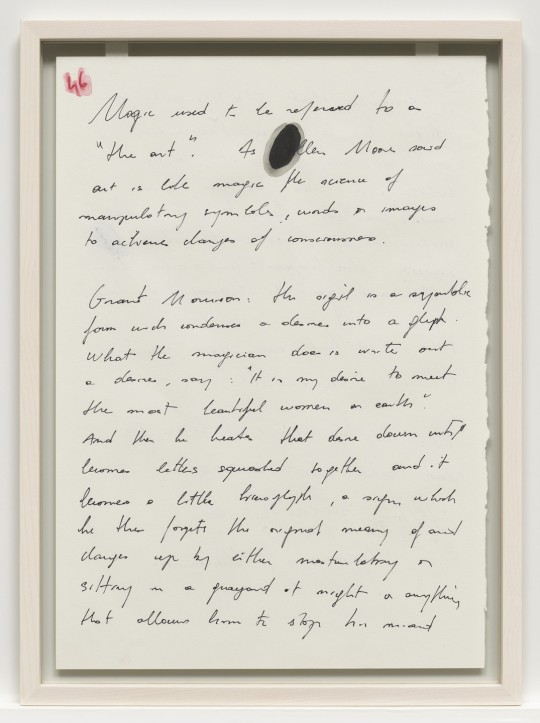 46
Magic used to be referred to a
"the art". As llen Moore said
art is like magic the science of
manipulating symbols, words or images
to achieve changes of consciousness.
Grant Morrison: the sigil is a symbolic
form wich condenses a desire into a glyph.
What the magician does is write out
a desire, say: "It is my desire to meet
the most beautiful women on earth".
And then he beats that desire down until
becomes letters squashed together and it
becomes a little hieroglyph, a sign which
he then forgets the original meaning of and
charges up by either masturbating or
sitting in a graveyard at night or anything
that allows him to stop his mind